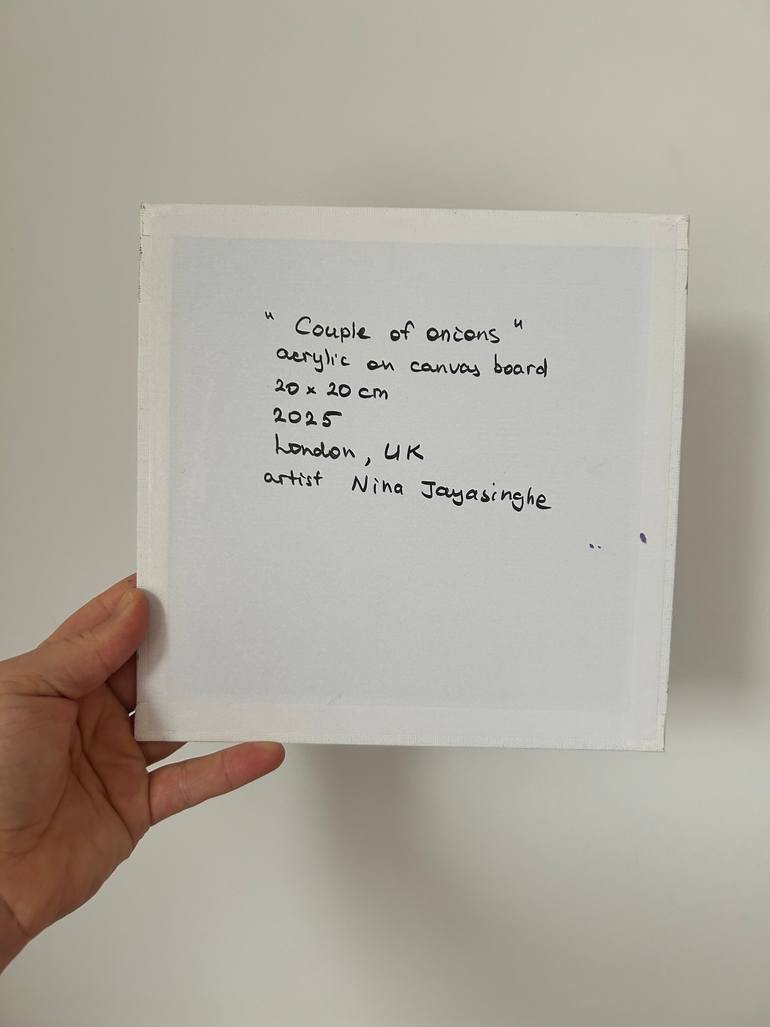 " Couple of onions "
acrylic on canvas board
20 x 20 cm
2025
London, UK
artist Nina Jayasinghe